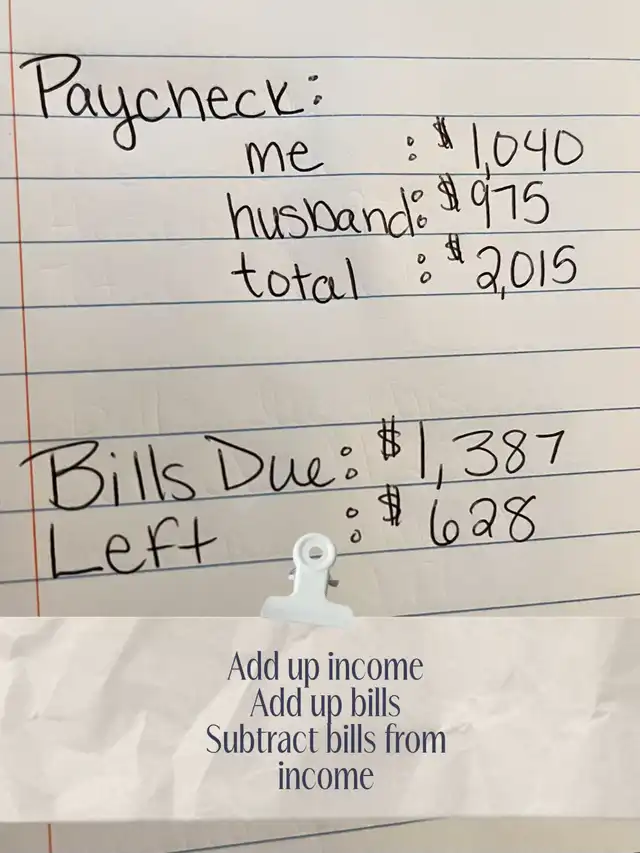 Paycheck:
me : $1,040
husband: $975
total : $2,015
Bills Due: $1,387
Left : $628
Add up income
Add up bills
Subtract bills from
income